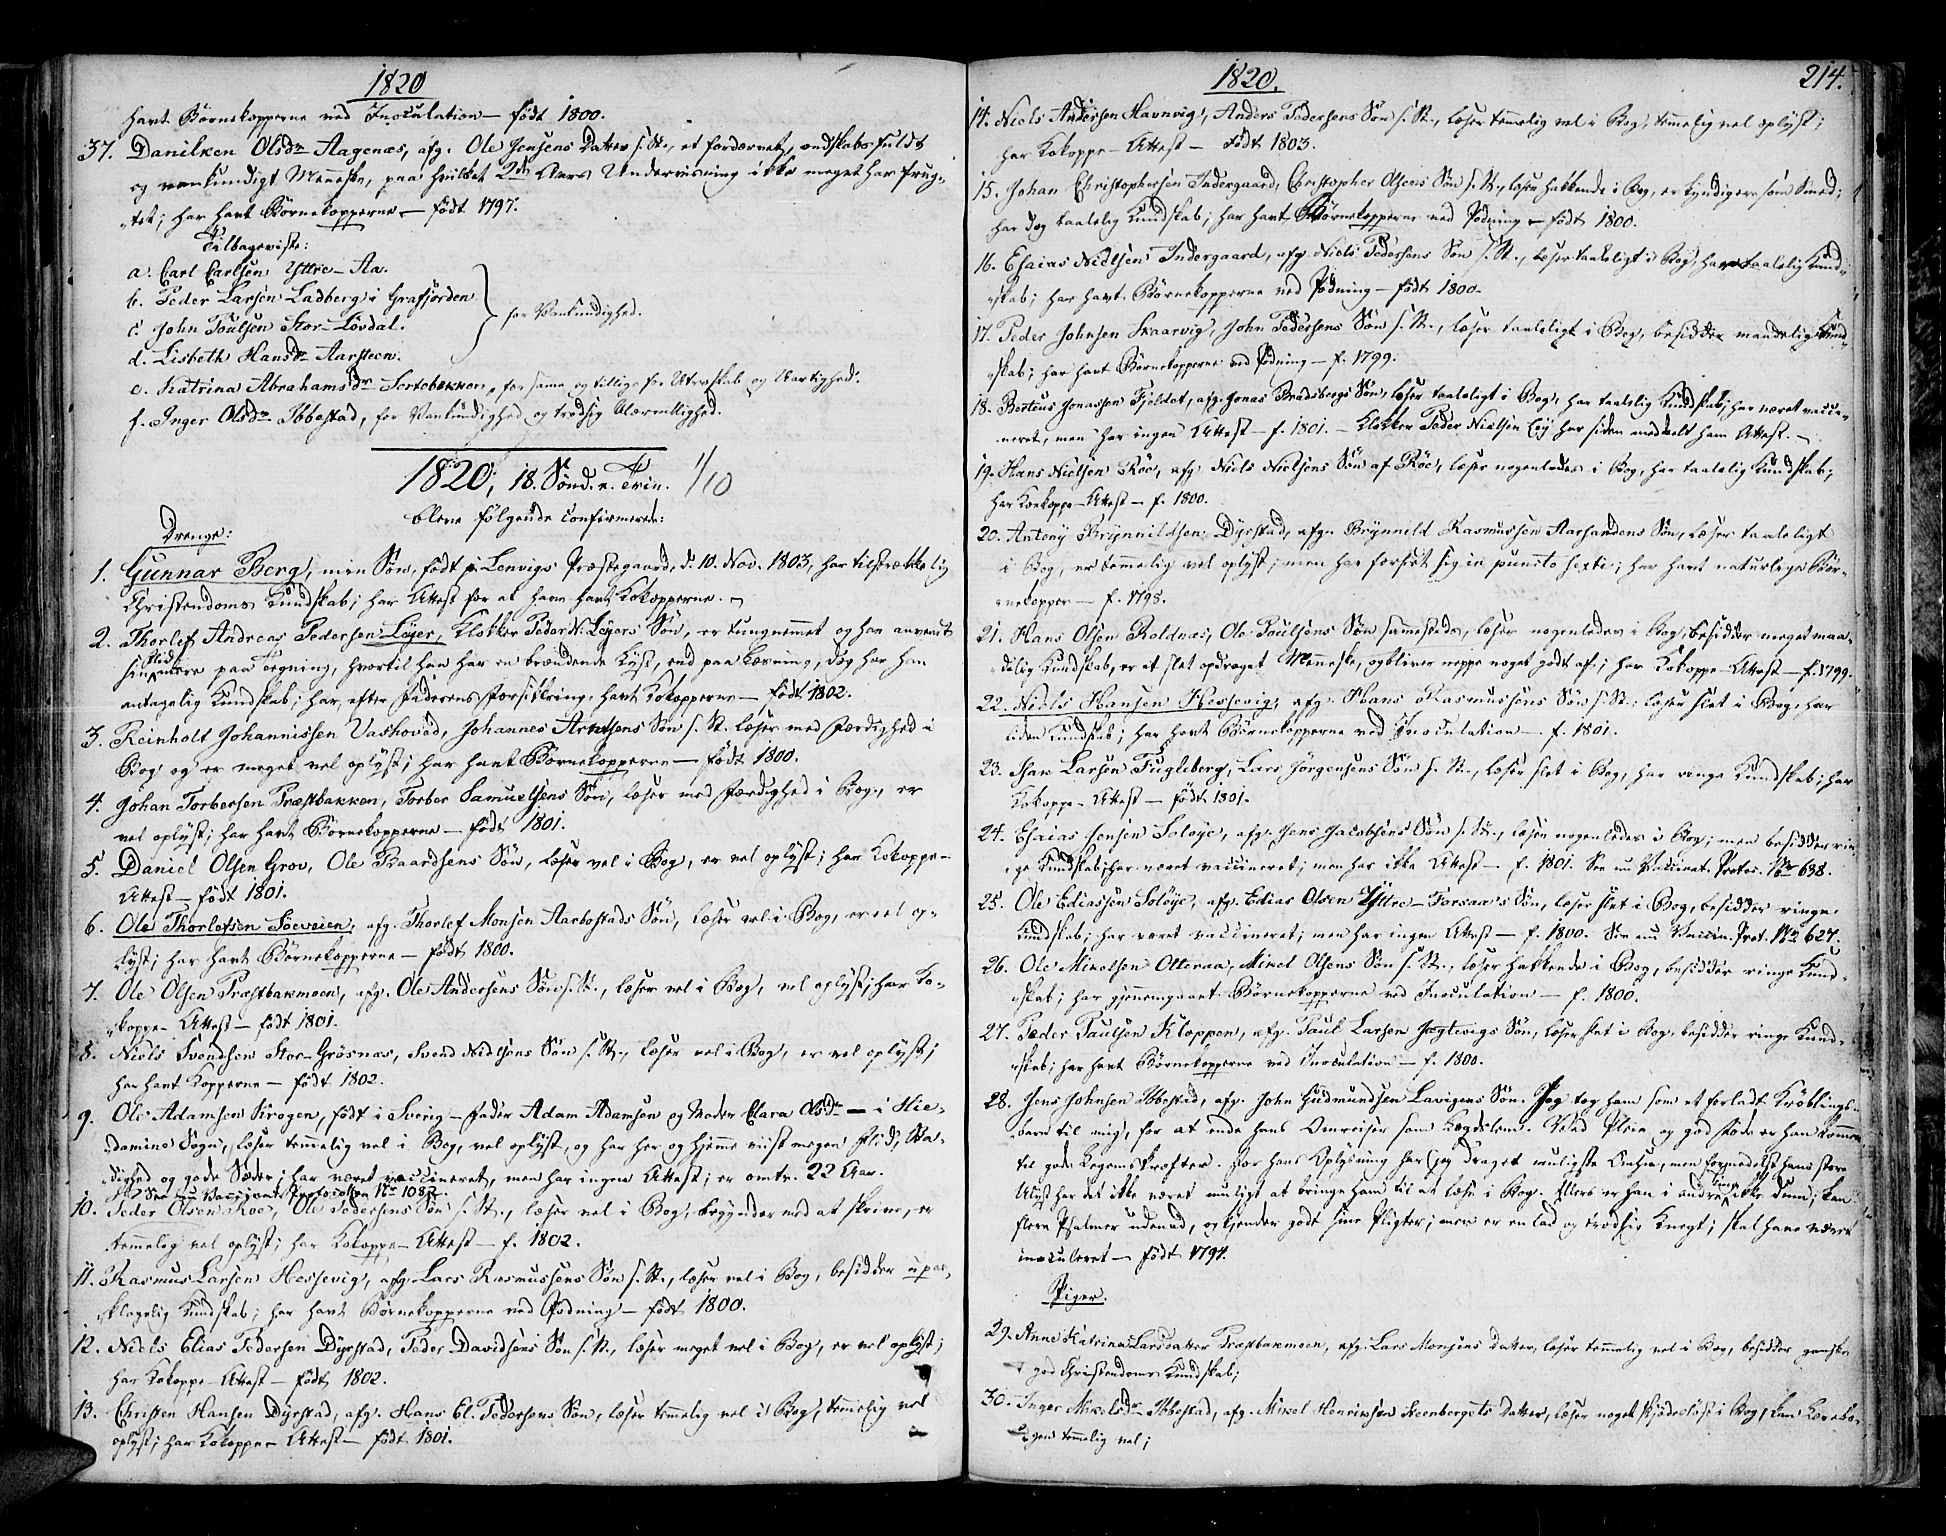 1820
havt Børnekopperne ved Inoculation — født 1800.
37. Danilken Olsdr Aagenæs, afg. Ole Jensens Datter s. St., et fordærvet, ondskabsfuldt
og vankundigt Menneske, paa hvilket 2de Aars Undervisning ikke meget har frug-
tet; har havt Børnekopperne — født 1797.
Tilbageviste:
a. Carl Carlsen Yttre-Aa.
b. Peder Larsen Ladberg i Grafjorden
c. John Poulsen Stor-Løvdal.
d. Lisbeth Hansdr Aarsteen.
for Vankundighed.
e. Katrina Abrahamsdr Sortebakken, for samme og tillige for Uterskab og Uartighed.
f. Inger Olsdr Ibbestad, for Vankundighed og trodsig Uærvillighed.
1820, 18. Sønd. e. Trin. 1/10
bleve følgende confirmerede:
Drenge:
1. Gunnar Berg, min Søn, født på Lenvigs Præstegaard, d. 10. Nov. 1803, har tilstrækkelig
Christendoms Kundskab; har Attest for at have havt Kokopperne.
2. Thorlef Andreas Pedersen Løyer, Klokker Peder N. Løyers Søn, er tungnemmet og har anvendt
sin Flid mere paa Tegning, hvortil han har en brændende Lyst, end paa Læsning, dog har han
antagelig Kundskab; har, efter Faderens Forsikkring, havt Kokopperne — født 1802.
3. Reinholt Johannissen Vashoved, Johannes Arntsens Søn s. St. læser med Færdighed i
Bog og er meget vel oplyst; har havt Børnekopperne — født 1800.
4. Johan Torbersen Præstbakken, Torber Samuelsens Søn, læser med Færdighed i Bog, er
vel oplyst; har havt Børnekopperne — født 1801.
5. Daniel Olsen Grov, Ole Baardsens Søn, læser vel i Bog, er vel oplyst; har Kokoppe-
Attest — født 1801.
6. Ole Thorlefsen Søeveien, afg. Thorlef Monsen Aarbostads Søn, læser vel i Bog, er vel op-
lyst; har havt Børnekopperne — født 1800.
7. Ole Olsen Præstbakmoen, afg. Ole Andersens Søn s. St., læser vel i Bog, vel oplyst; har Ko-
koppe-Attest — født 1801.
8. Niels Svendsen Stor-Grøsnas, Svend Nielsens Søn s. St., læser vel i Bog, er vel oplyst;
har havt Kopperne — født 1802.
9. Ole Adamsen Krogen, født i Sverig — Fader Adam Adamsen og Moder Clara Olsdr — i Hie-
damine Sogn, læser temmelig vel i Bog, vel oplyst, og har her og hjemme viist megen Flid, Sta-
dighed og gode Sæder; har været vaccineret, men har ingen Attest; er omtr. 22 Aar.
See nu Vaccinat. Protocollen No 1082.
10. Peder Olsen Roe, Ole Pedersens Søn s. St., læser vel i Bog, begynder med at skrive, er
temmelig vel oplyst; har Kokoppe-Attest — f. 1802.
11. Rasmus Larsen Hessevig, afg. Lars Rasmussens Søn s. St., læser vel i Bog, besidder upaa-
klagelig Kundskab; har havt Børnekopperne ved Podning — født 1800.
12. Niels Elias Pedersen Dyrstad, Peder Davidsens Søn s. St., læser meget vel i Bog, er vel oplyst;
har Kokoppe-Attest — født 1802.
13. Christen Hansen Dyrstad, afg. Hans El. Pedersens Søn, læser temmelig vel i Bog, temmelig vel
oplyst; har Kokoppe-Attest — født 1801.
1820.
214.
14. Niels Andersen Havnvig, Anders Pedersens Søn s. St., læser temmelig vel i Bog, temmelig vel oplyst;
har Kokoppe-Attest — født 1803.
15. Johan Christophersen Indergaard, Christopher Olsens Søn s. St., læser hakkende i Bog, er kyndigere som Smed;
har dog taalelig Kundskab; har havt Børnekopperne ved Podning — født 1800.
16. Esaias Nielsen Indergaard, afg. Niels Pedersens Søn s. St., læser taaleligt i Bog, har taalelig Kund-
skab; har havt Børnekopperne ved Podning — født 1800.
17. Peder Johnsen Skaarvig, John Pedersens Søn s. St., læser taaleligt i Bog, besidder maadelig Kund-
skab; har havt Børnekopperne ved Podning — f. 1799.
18. Berteus Jonassen Fjeldet, afg. Jonas Bradsbergs Søn, læser taaleligt i Bog, har taalelig Kundskab; har været vacci-
neret, men har ingen Attest — f. 1801. — Klokker Peder Nielsen Løy har siden meddeelt ham Attest.
19. Hans Nielsen Röe, afg. Niels Nielsens Søn af Röe, læser nogenledes i Bog, har taalelig Kundskab;
har Kokoppe-Attest — f. 1800.
20. Antony Brynnildsen Dyrstad, afg. Brynnild Rasmussen Aarsandens Søn, læser taaleligt
i Bog, er temmelig vel oplyst; men har forseet sig in puncto sexti; har havt naturlige Bør-
nekopper — f. 1798.
21. Hans Olsen Roldnæs, Ole Poulsens Søn sammesteds, læser nogenledes i Bog, besidder meget maa-
delig Kundskab, er et slet opdraget Menneske, og bliver neppe noget godt af; har Kokoppe-Attest — f. 1799.
22. Niels Hansen Hessevig, afg. Hans Rasmussens Søn s. St., læser slet i Bog, har
liden Kundskab; har havt Børnekopperne ved Inoculation — f. 1801.
23. Isak Larsen Fugleberg, Lars Jörgensens Søn s. St., læser slet i Bog, har ringe Kundskab; har
Kokoppe-Attest — født 1801.
24. Esaias Jensen Soløye, afg. Jens Jacobsens Søn s. St., læser nogenledes i Bog; men besidder rin-
ge Kundskab; har været vaccineret; men har ikke Attest — f. 1801. See nu Vaccinat. Protoc. No 638.
25. Ole Ediassen Soløye, afg. Edias Olsen Yttre-Forsaa's Søn, læser slet i Bog, besidder ringe
Kundskab; har været vaccineret; men har ingen Attest — f. 1800. See nu Vaccin. Prot. No 627.
26. Ole Mikelsen Otteraa, Mikel Olsens Søn s. St., læser hakkende i Bog, besidder ringe Kund-
skab; har gjennemgaaet Børnekopperne ved Inoculation — f. 1800.
27. Peder Paulsen Kloppen, afg. Paul Larsen Jægtevigs Søn, læser slet i Bog, besidder ringe Kund-
skab; har havt Børnekopperne ved Inoculation — f. 1800.
28. Jens Johnsen Ibbestad, afg. John Gudmundsen Lavigens Søn. Jeg tog ham som et forladt Krøblings-
barn til mig, for at ende hans Omreiser som Lægdslem. Ved Pleie og god Føde er han kommen
til gode Legemskræfter. For hans Oplysning har jeg draget muligste Omsu, men formedelst hans store
Ulyst har det ikke været muligt at bringe ham til at læse i Bog. Ellers er han i andre Ting ikke dum; kan
flere Psalmer udenad, og kjender godt sine Pligter; men er en lad og trodsig Knegt; skal have været
inoculeret — født 1794.
Piger.
29. Anne Katrina Larsdatter Præstbakmoen, afg. Lars Monsens Datter, læser temmelig vel i Bog, besidder ganske
god Christendoms Kundskab;
30. Inger Mikelsdr Ibbestad, afg. Mikel Henriksen Steenbergets Datter, læser noget skjødesløst i Bog, kan Lærebo-
gen temmelig vel;